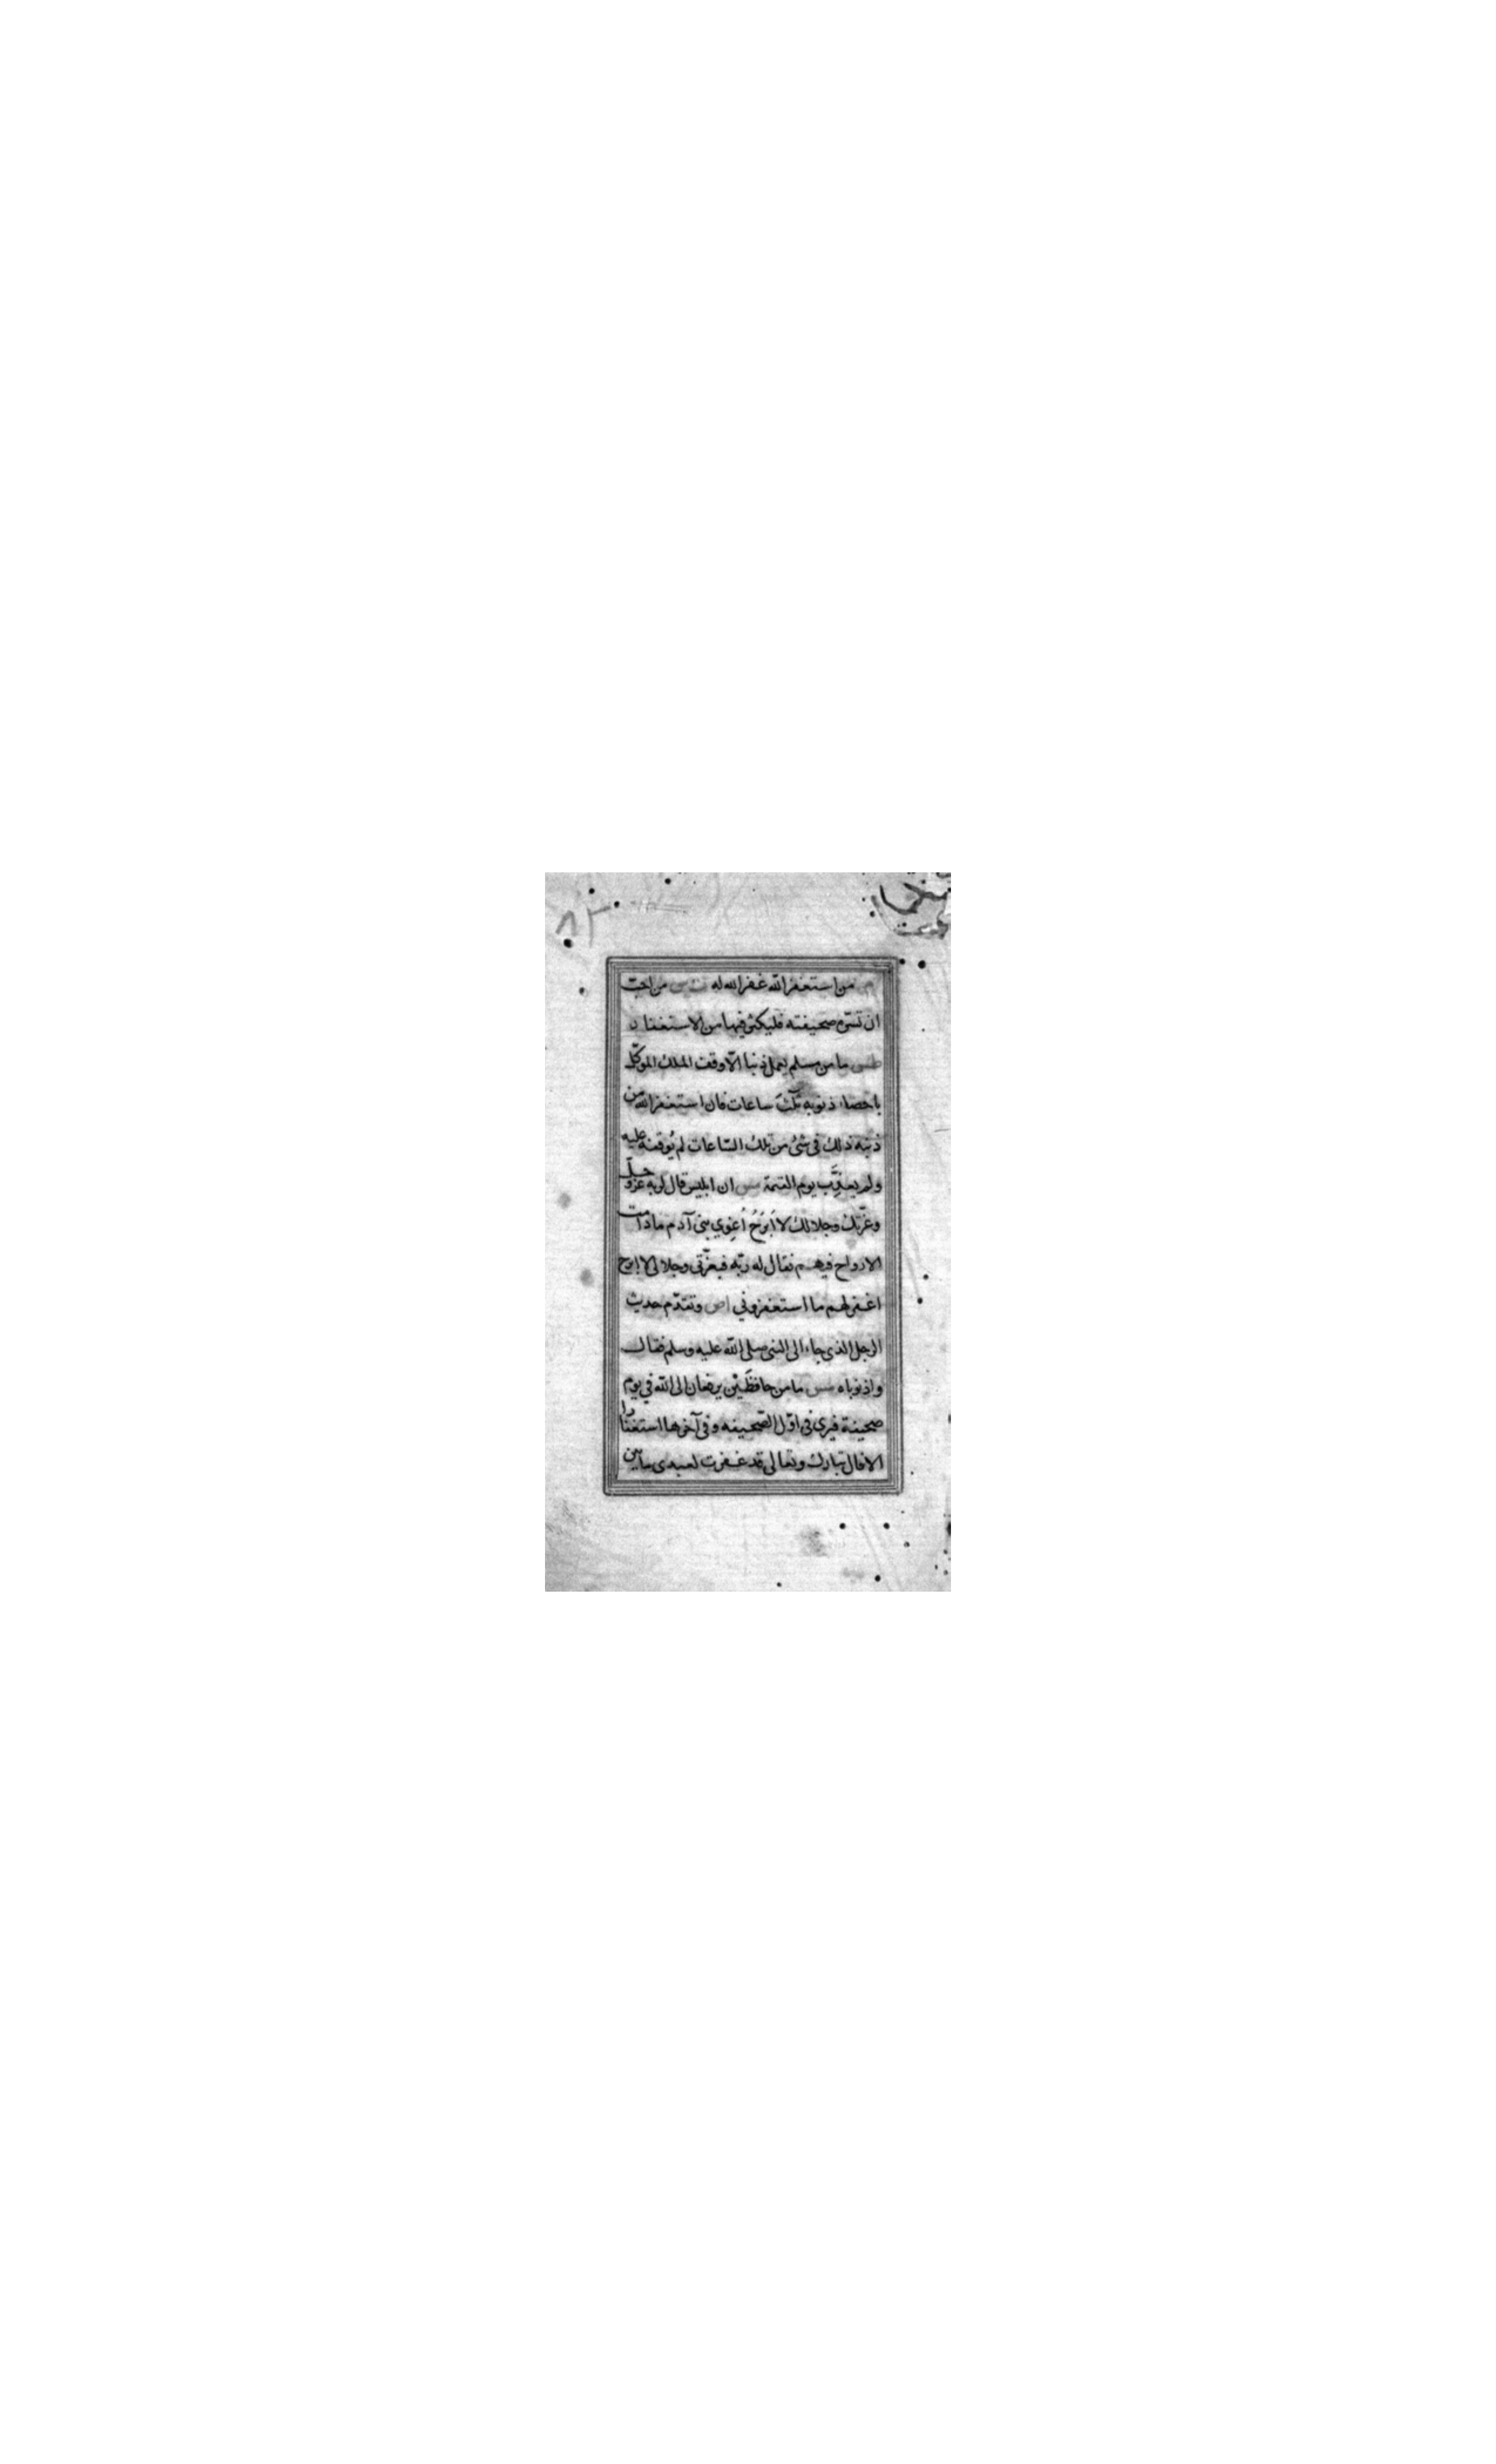 ٨٢
من استغفر الله غفر الله له ت س من احبّ
ان تسرّه صحيفته فليكثر فيها من الاستغفار
طس ما من مسلم يعمل ذنبا الّا وقف الملك الموكّل
باحصاء ذنوبه ثلث ساعات فان استغفر الله من
ذنبه ذلك فى شئ من تلك السّاعات لم يُوقفه عليه
ولم يعذَّب يوم القيمة مس ان ابليس قال لربه عزّ وجلّ
وعزّتك وجلالك لا اَبرَحُ اُغوِي بنى آدم ما دامت
الارواح فيهم فقال له ربّه فبعزّتى وجلالى لا ابرح
اغفر لهم ما استغفرونى اص وتقدّم حديث
الرجل الذى جاء الى النبى صلى الله عليه وسلم فقال
واذنوباه مس ما من حافظَيْن يرفعان الى الله فى يوم
صحيفة فيرى فى اوّل الصّحيفه وفى آخرها استغفارا
الا قال تبارك وتعالى قد غفرت لعبدى ما بين